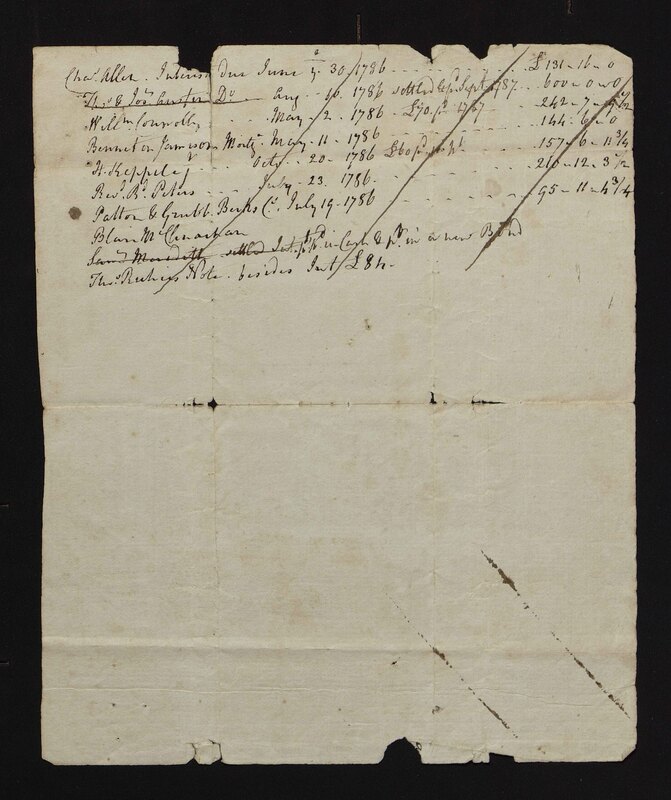 Chas. Allen. Interest due June 30 1786 - - - - - £ 131 - 16 - 0
Thos. & Jos. Do Aug. 16. 1786 settled Sept. 1787 - 600 - 0 - 0
Willm Connolly - - - May - 2 - 1786 - £70. pd. 1787 - 242 - 7 -
Bennet on Jamison Mortg. May - 11 - 1786 - - - - 144 - 6 - 0
H. Keppele Octr. - 20 - 1786 £60 pd. - - 157 - 6 - 11 3/4
Revd. Rd. Peters - - - July - 23. 1786 - - - - 210 - 12 - 3 1/2
Patton & Grubb. Berks Co. July 19 - 1786 - - - - 95 - 11 - 4 3/4
Blair McClenachan
Saml Meredith settled Int. in Cash & in a new Bond
Thos. Note. besides Int. £84 -